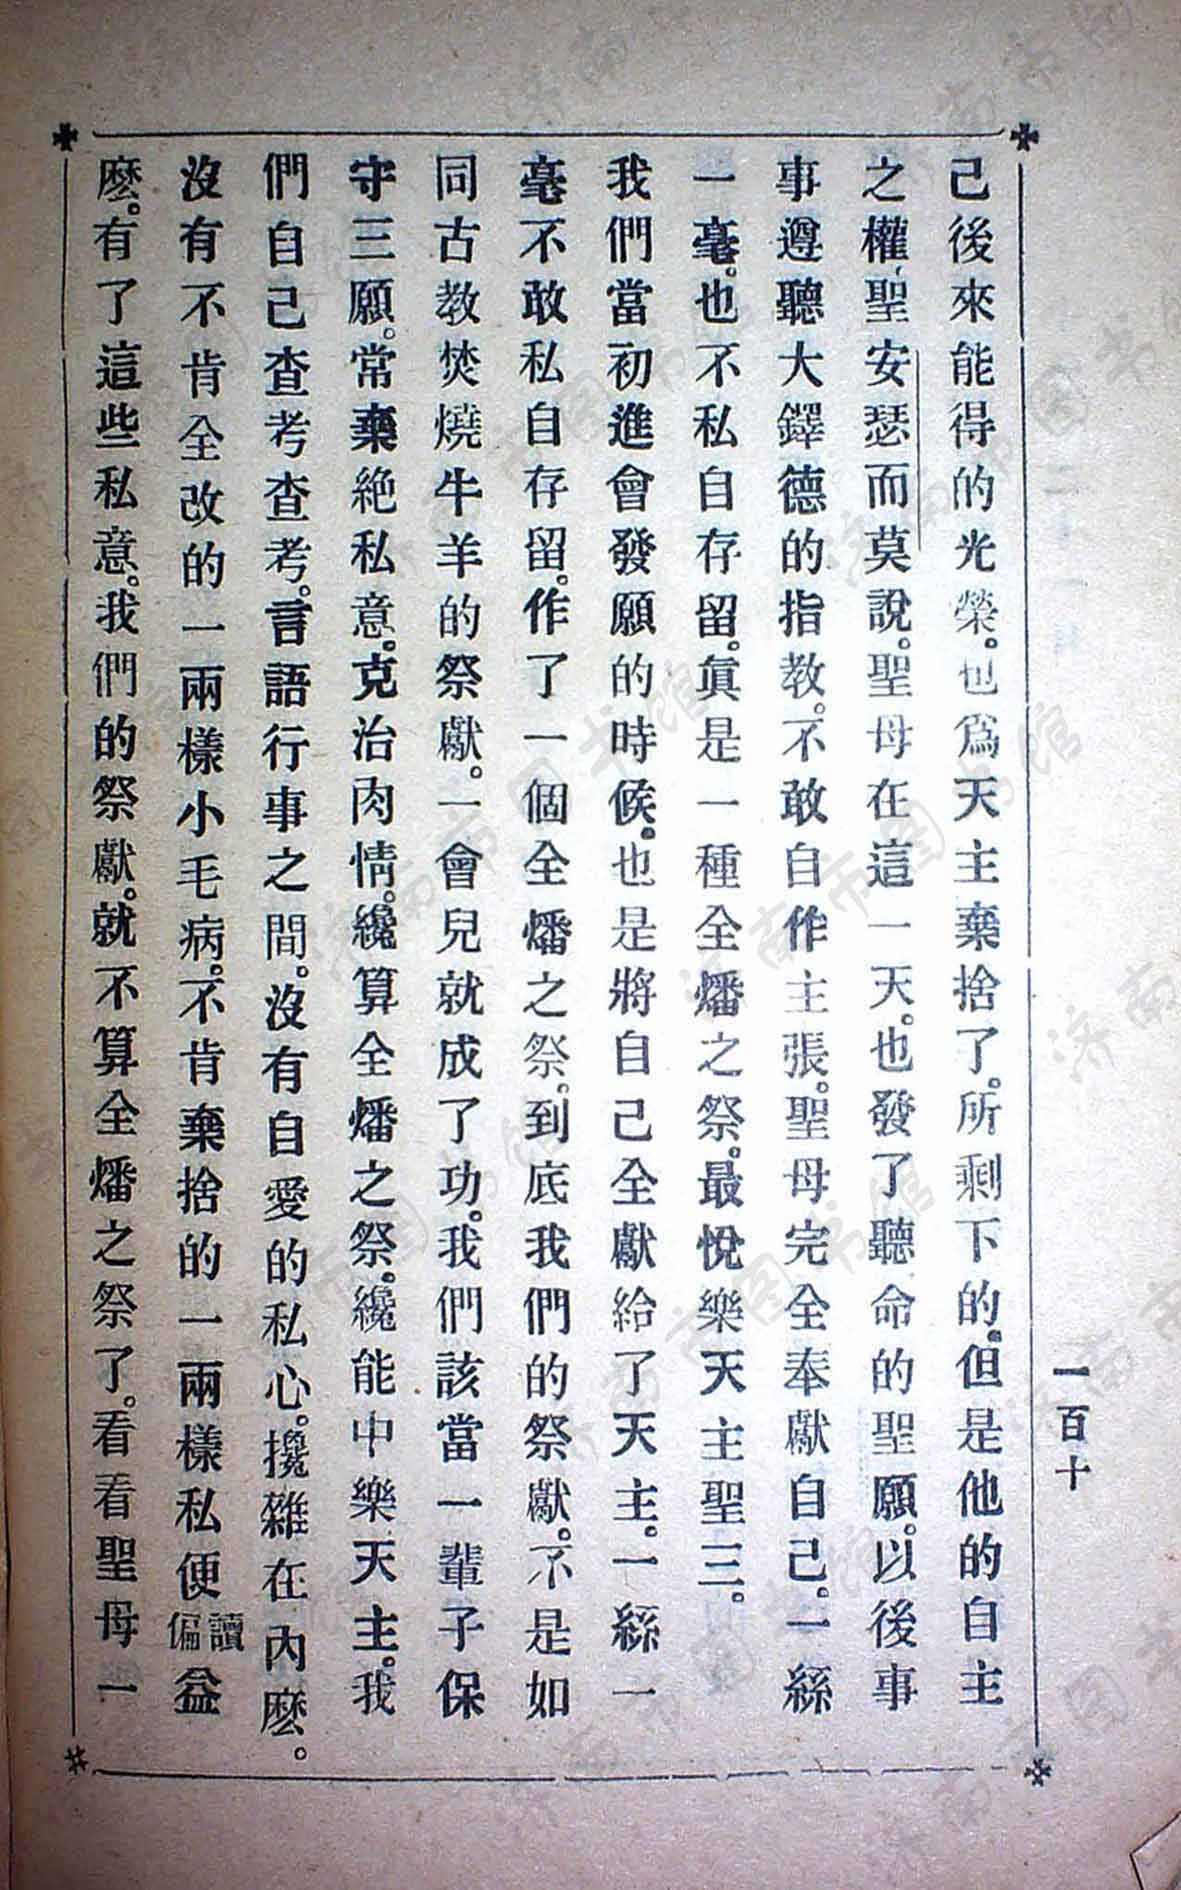 一百十
己後來能得的光榮。也爲天主棄捨了。所剩下的。但是他的自主
之權、聖安瑟而莫說。聖母在這一天。也發了聽命的聖願。以後事
事遵聽大鐸德的指教。不敢自作主張。聖母完全奉獻自己。一絲
一毫。也不私自存留。眞是一種全燔之祭。最悅樂天主聖三。
我們當初進會發願的時候。也是將自己全獻給了天主。一絲一
毫不敢私自存留。作了一個全燔之祭。到底我們的祭獻。不是如
同古教焚燒牛羊的祭獻。一會兒就成了功。我們該當一輩子保
守三願。常棄絕私意。克治肉情。纔算全燔之祭。纔能中樂天主。我
們自己查考查考。言語行事之間。沒有自愛的私心。攙雜在內麽。
沒有不肯全改的一兩樣小毛病。不肯棄捨的一兩樣私便讀偏益
麽。有了這些私意。我們的祭獻。就不算全燔之祭了。看看聖母一
济南市图书馆